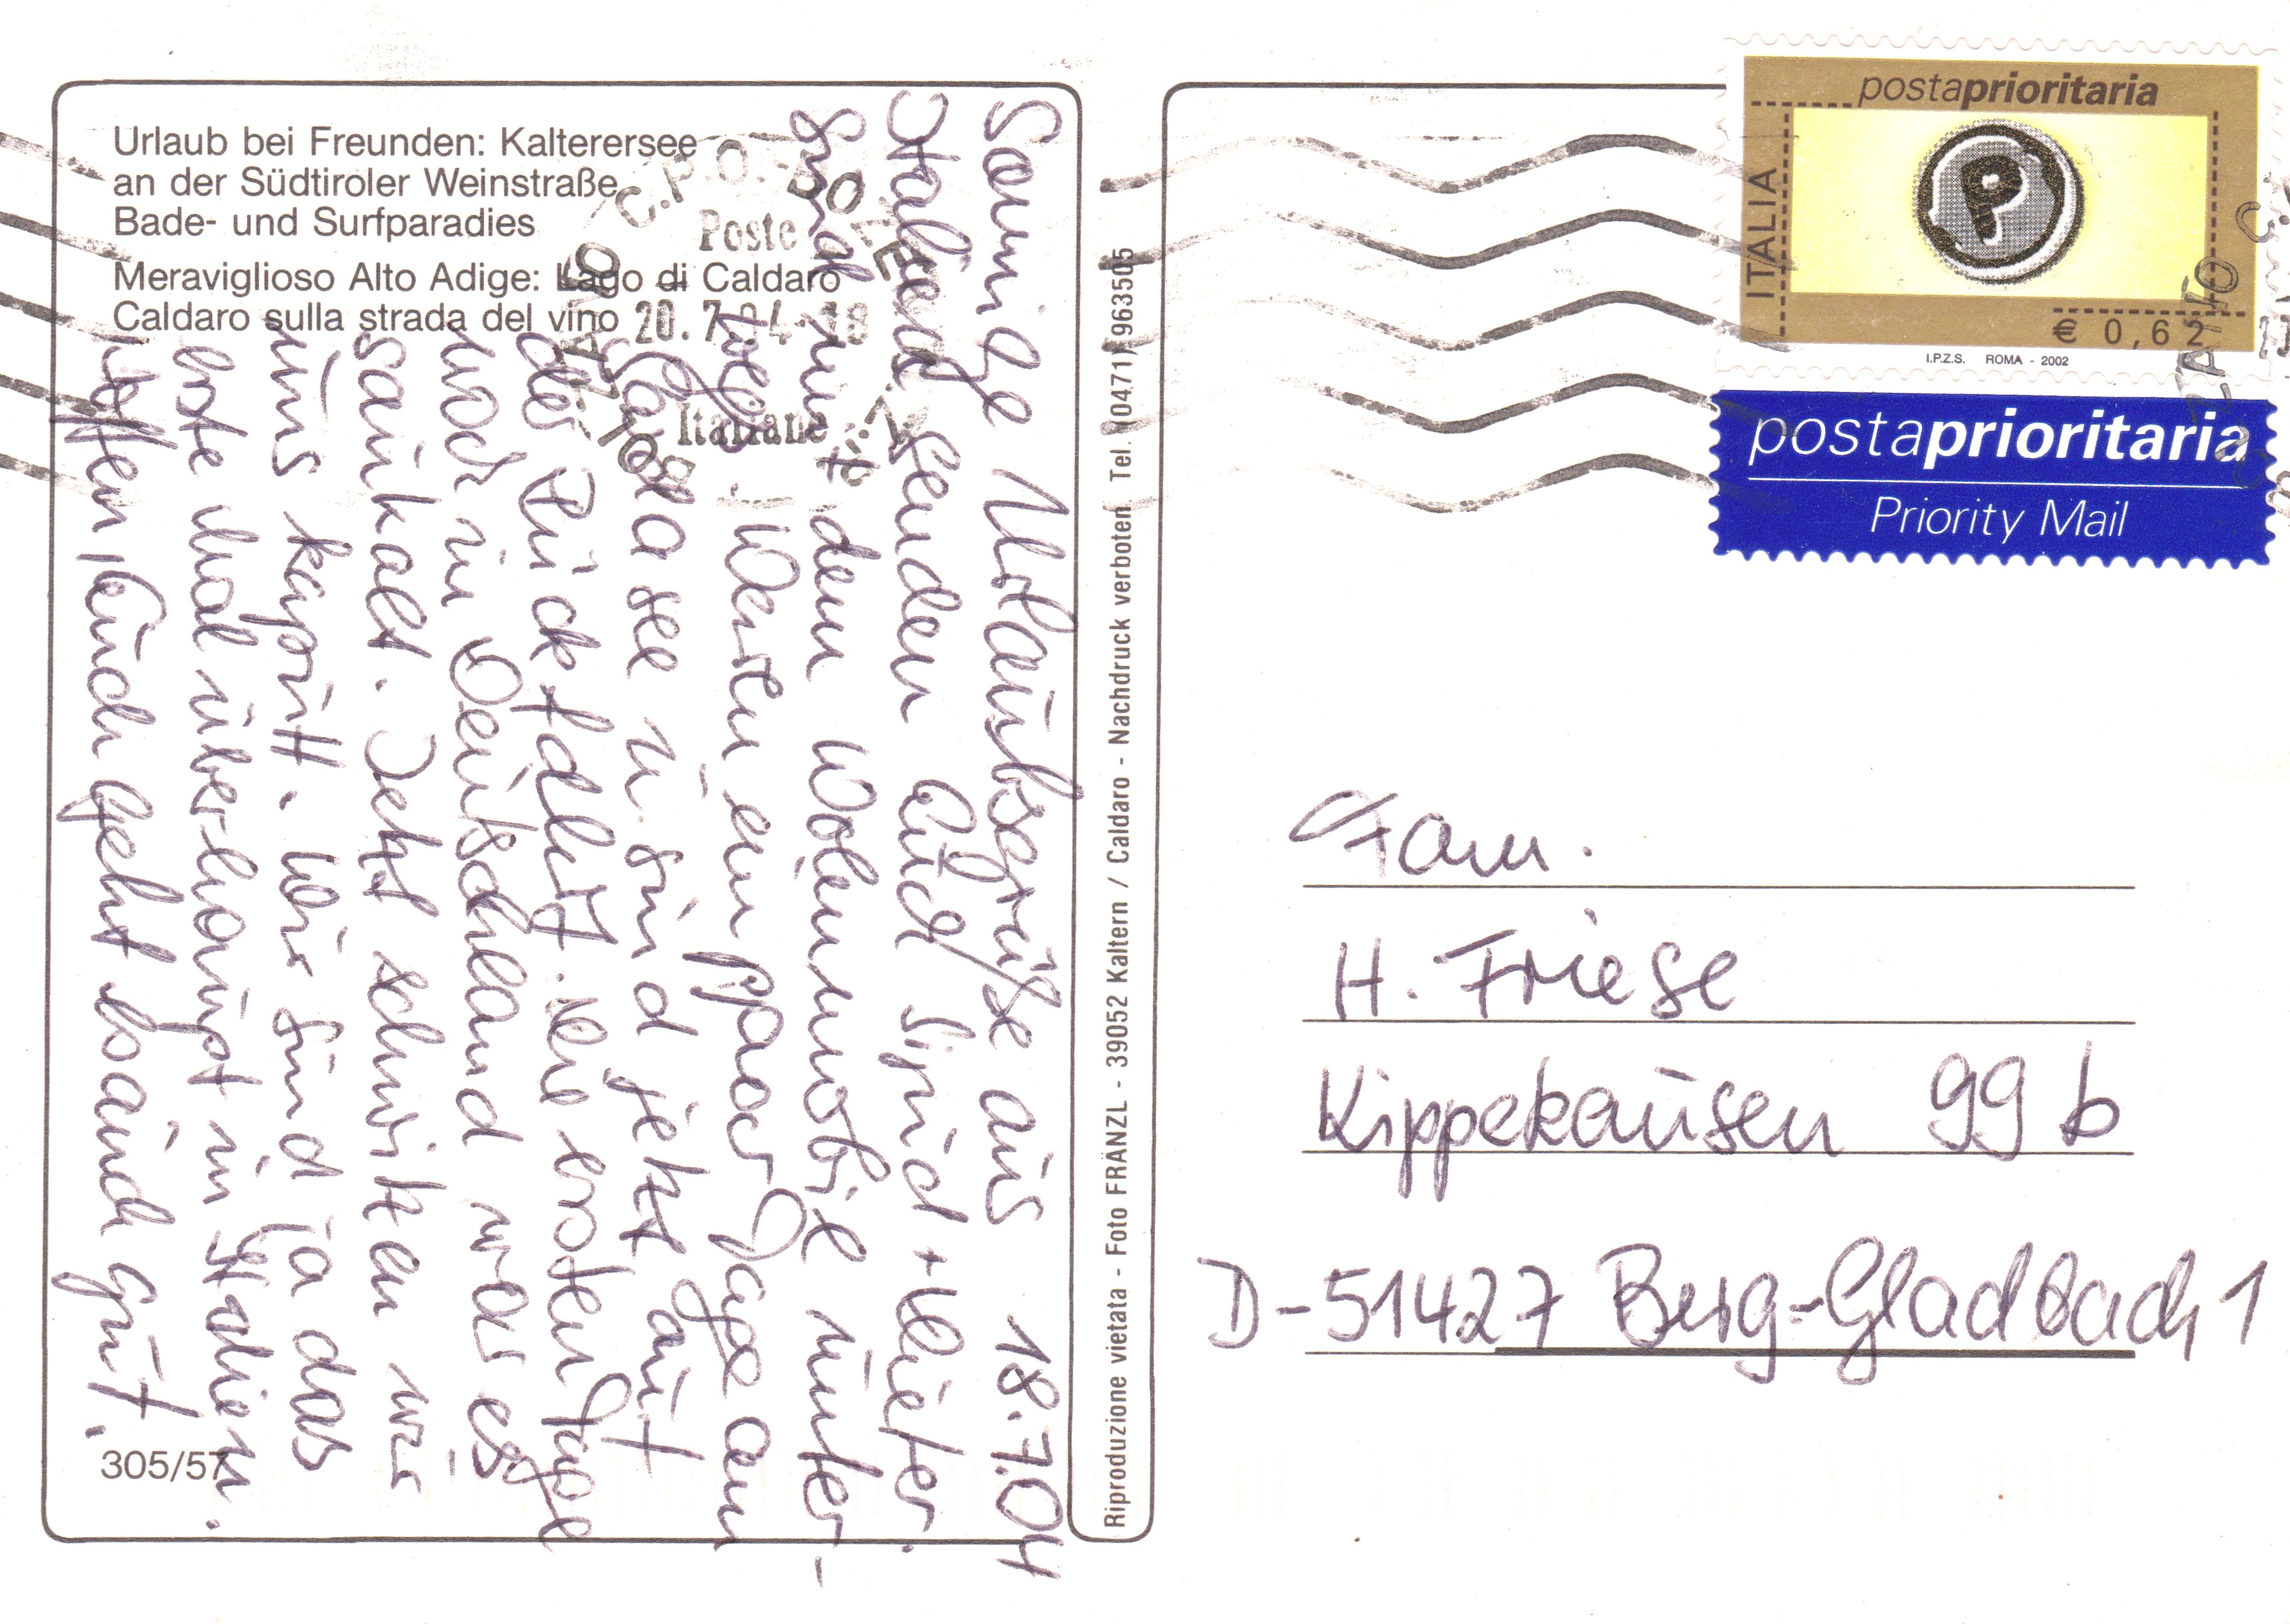 Urlaub bei Freunden: Kalterersee
an der Südtiroler Weinstraße
Bade- und Surfparadies
Meraviglioso Alto Adige: Lago di Caldaro
Caldaro sulla strada del vino
Sonnige Urlaubsgrüße aus 18.7.04
Italien senden Euch Sigrid + Dieter.
Sind mit dem Wohnmobil unter-
wegs. Waren ein paar Tage am
Gardasee u. sind jetzt auf
der Rückfahrt. Die ersten Tage
noch in Deutschland war es
saukalt. Jetzt schwitzen wir
uns kaputt. Wir sind ja das
erste Mal überhaupt in Italien.
Hoffen, Euch geht's auch gut.
305/57
Riproduzione vietata - Foto FRÄNZL - 39052 Kaltern / Caldaro - Nachdruck verboten Tel. (0471) 963505
BOLZANO C.P.O. - BOZEN
Poste
20.7.04-18
Italiane
postaprioritaria
ITALIA
P
€ 0,62
I.P.Z.S. ROMA - 2002
postaprioritaria
Priority Mail
Fam.
H. Friese
Kippekausen 99 b
D-51427 Berg.-Gladbach 1